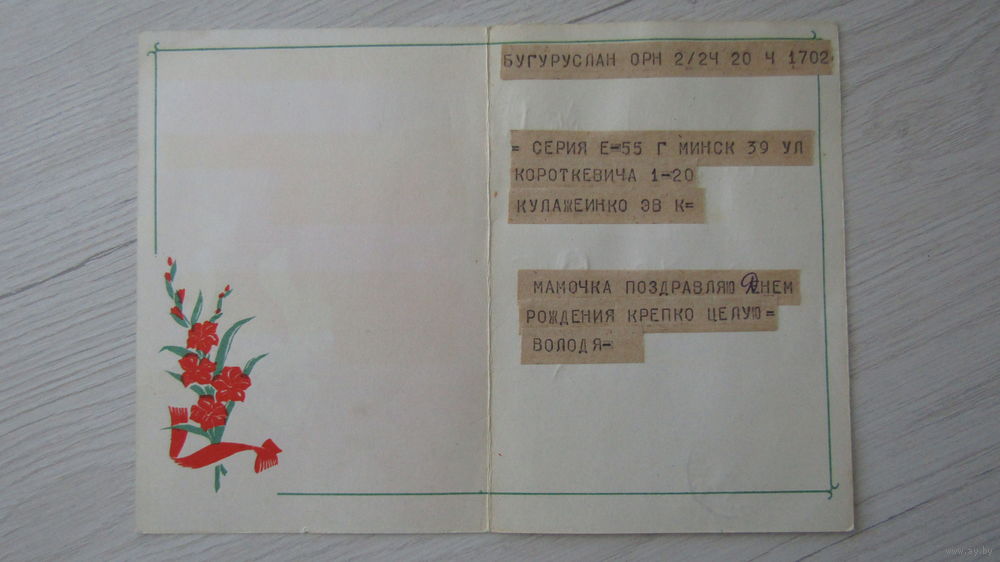 БУГУРУСЛАН ОРН 2/24 20 Ч 1702
= СЕРИЯ Е-55 Г МИНСК 39 УЛ
КОРОТКЕВИЧА 1-20
КУЛАЖЕИНКО ЭВ К=
МАМОЧКА ПОЗДРАВЛЯЮ ДНЕМ
РОЖДЕНИЯ КРЕПКО ЦЕЛУЮ=
ВОЛОДЯ=
www.ay.by